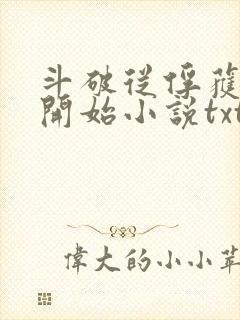 斗破從俘獲
開始小說txt
偉大的小小草